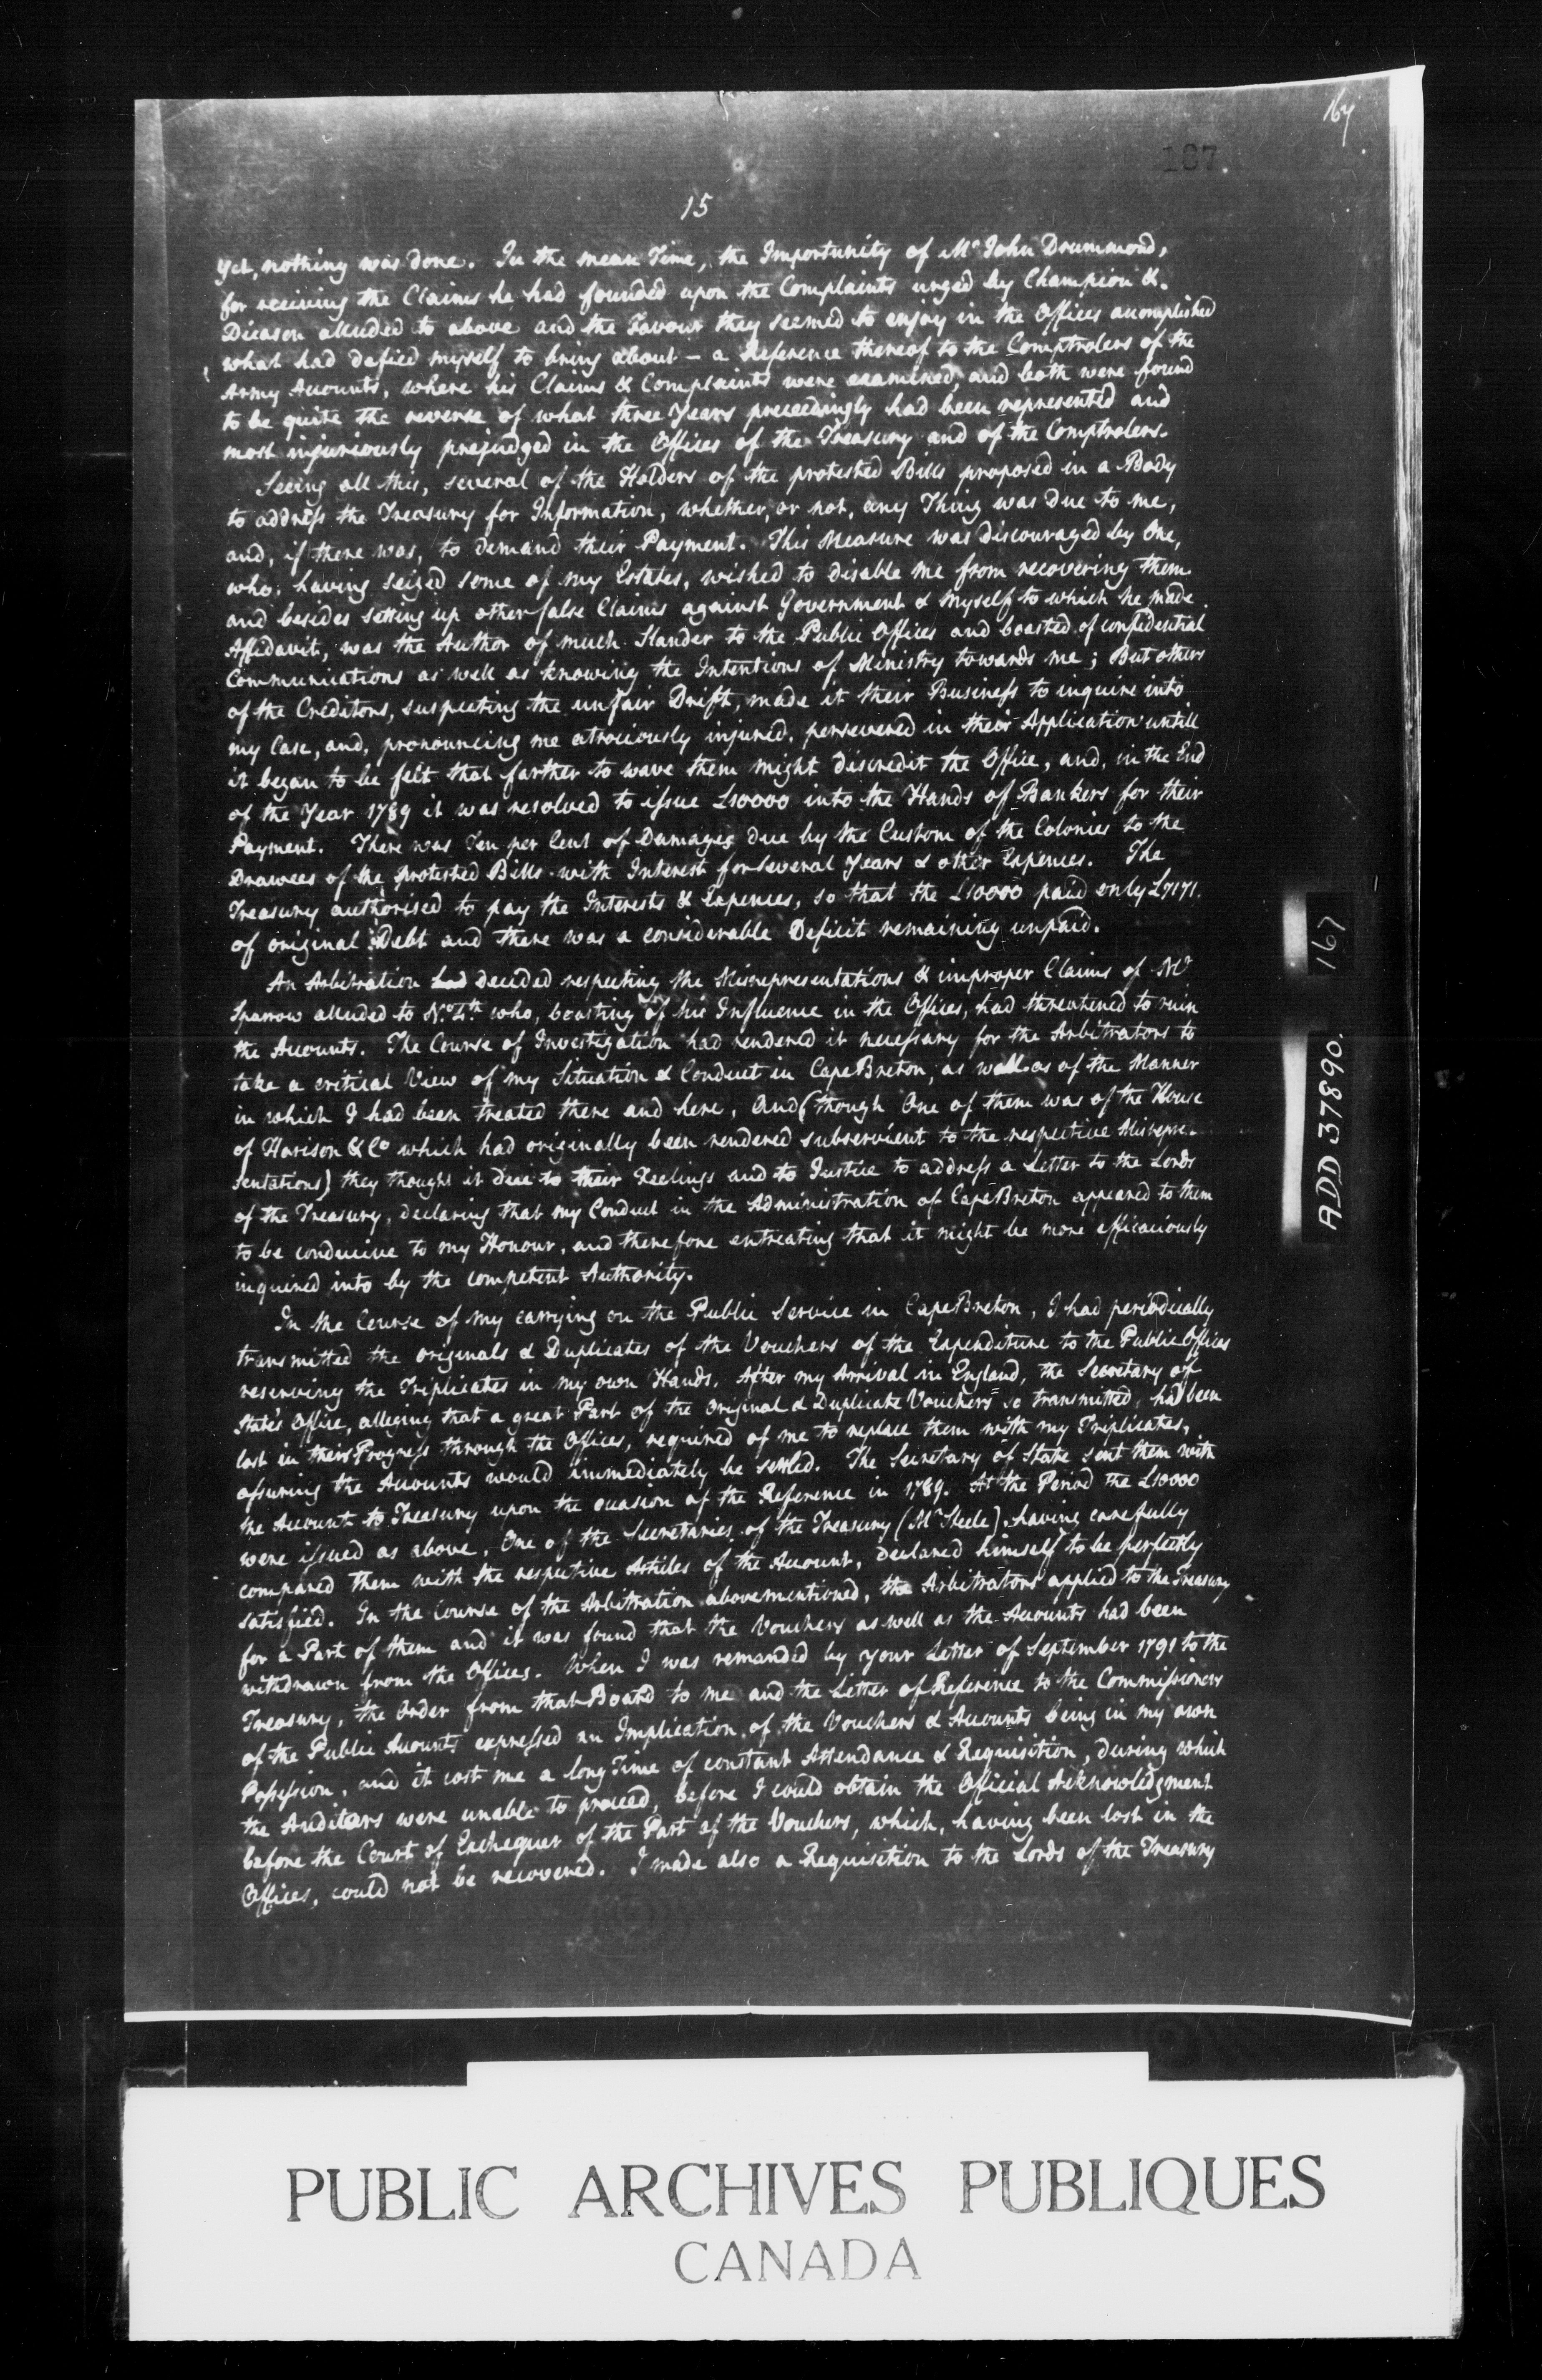 167
187
15
Yet, nothing was done. In the mean Time, the Importunity of Mr John Drummond,
for receiving the Claims he had founded upon the Complaints urged by Champion &
Dicason alluded to above and the Favour they seemed to enjoy in the Offices accomplished
what had defied myself to bring about – a Reference thereof to the Comptrolers of the
Army Accounts, where his Claims & Complaints were examined and both were found
to be quite the reverse of what three Years preceedingly had been represented and
most injuriously prejudged in the Offices of the Treasury and of the Comptrolers.
Seeing all this, several of the Holders of the protested Bills proposed in a Body
to address the Treasury for Information, whether, or not, any Thing was due to me,
and, if there was, to demand their Payment. This Measure was discouraged by One,
who, having seized some of my Estates, wished to disable me from recovering them
and besides setting up other false Claims against Government & myself to which he made
Affidavit, was the Author of much Slander to the Public Offices and boasted of confidential
Communications as well as knowing the Intentions of Ministry towards me; But others
of the Creditors, suspecting the unfair Drift, made it their Business to inquire into
my Case, and, pronouncing me atrociously injured, persevered in their Application untill
it began to be felt that farther to wave them might discredit the Office, and, in the End
of the Year 1789 it was resolved to issue £10000 into the Hands of Bankers for their
Payment. There was Ten per Cent of Damages due by the Custom of the Colonies to the
Drawees of the protested Bills with Interest for several Years & other Expences. The
Treasury authorised to pay the Interests & Expences, so that the £10000 paid only £7171.
of original Debt and there was a considerable Deficit remaining unpaid.
An Arbitration had decided respecting the Misrepresentations & improper Claims of Mr
Sparrow alluded to No 4th who, boasting of his Influence in the Offices, had threatened to ruin
the Accounts. The Course of Investigation had rendered it necessary for the Arbitrators to
take a critical View of my Situation & Conduct in Cape Breton, as well as of the Manner
in which I had been treated there and here, And (though One of them was of the House
of Harison & Co which had originally been rendered subservient to the respective Misrepre-
sentations) they thought it due to their Feelings and to Justice to address a Letter to the Lords
of the Treasury, declaring that my Conduct in the Administration of Cape Breton appeared to them
to be conducive to my Honour, and therefore entreating that it might be more efficaciously
inquired into by the competent Authority.
In the Course of my carrying on the Public Service in Cape Breton, I had periodically
transmitted the originals & Duplicates of the Vouchers of the Expenditure to the Public Offices
reserving the Triplicates in my own Hands. After my Arrival in England, the Secretary of
State's Office, alleging that a great Part of the Original & Duplicate Vouchers so transmitted, had been
lost in their Progress through the Offices, required of me to replace them with my Triplicates,
assuring the Accounts would immediately be settled. The Secretary of State sent them with
the Account to Treasury upon the occasion of the Reference in 1789. At the Period the £10000
were issued as above, One of the Secretaries of the Treasury (Mr Steele) having carefully
compared them with the respective Articles of the Account, declared himself to be perfectly
satisfied. In the Course of the Arbitration abovementioned, the Arbitrators applied to the Treasury
for a Part of them and it was found that the Vouchers as well as the Accounts had been
withdrawn from the Offices. When I was remanded by your Letter of September 1791 to the
Treasury, the Order from that Board to me and the Letter of Reference to the Commissioners
of the Public Accounts expressed an Implication of the Vouchers & Accounts being in my own
Possession, and it cost me a long Time of constant Attendance & Requisition, during which
the Auditors were unable to proceed, before I could obtain the Official Acknowledgment
before the Court of Exchequer of the Part of the Vouchers, which, having been lost in the
Offices, could not be recovered. I made also a Requisition to the Lords of the Treasury
ADD 37890. 167
PUBLIC ARCHIVES PUBLIQUES
CANADA